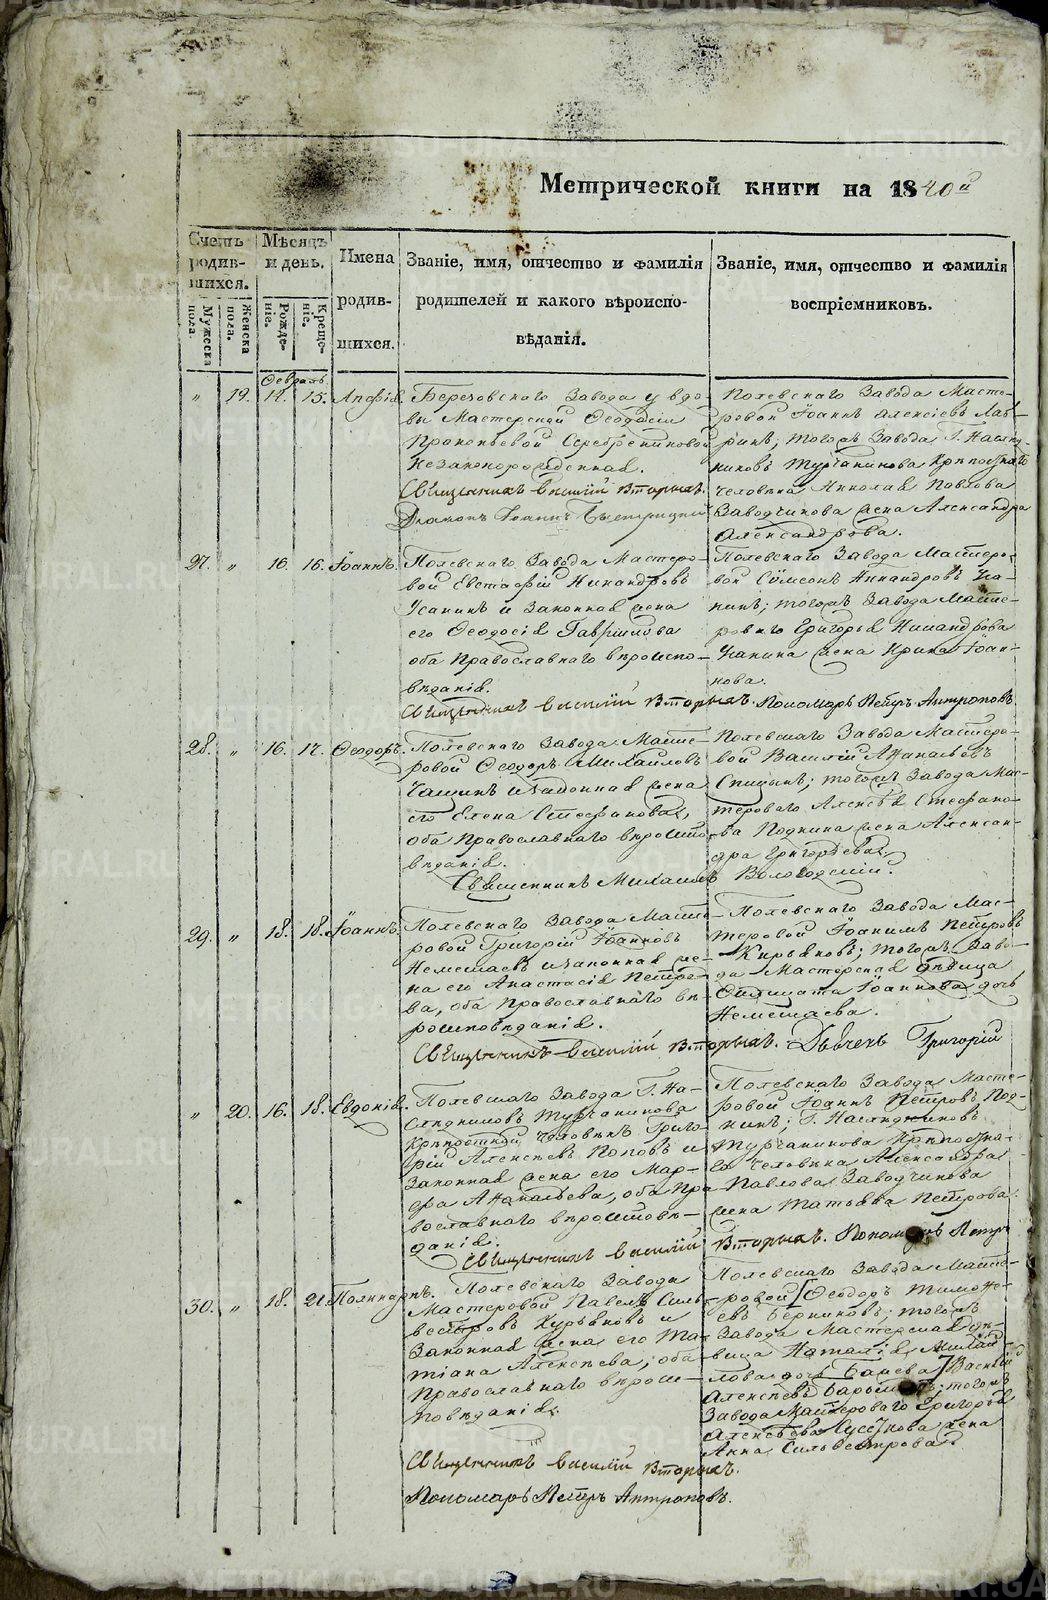 Метрической книги на 1840й
Счетъ родив-шихся.
Мужеска пола.
Женска пола.
Мѣсяцъ и день.
Рожде-ніе.
Креще-ніе.
Имена родив-шихся.
Званіе, имя, отчество и фамилія
родителей и какого вѣроиспо-
вѣданія.
Званіе, имя, отчество и фамилія
воспріемниковъ.
Февраль
" 19. 14. 15.
Березовскаго Завода у вдо-
вы Мастерской Ѳеодосіи
Прокопьевой Серебрениковой
незаконорожденная.
Священникъ Василій Вторыхъ.
Діаконъ Іоаннъ
Полевскаго Завода Масте-
ровой Іоаннъ Алексіевъ Лав-
ринъ; тогожъ Завода Г. Наслѣд-
никовъ Турчанинова Крѣпостнаго
человѣка Николая Павлова
Заводчикова жена Александра
Александрова.
27. " 16. 16. Іоаннъ.
Полевскаго Завода Мастеро-
вой Евстафій Никандровъ
Усанинъ и Законная жена
его Ѳеодосія Гавріилова
оба Православнаго вѣроиспо-
вѣданія.
Полевскаго Завода Мастеро-
вой Сѵмеонъ Никандровъ Уса-
нинъ; тогожъ Завода Масте-
роваго Григорья Никандрова
Усанина жена Ирина Іоан-
нова.
Священникъ Василій Вторыхъ. Пономарь Петръ Антроповъ.
28. " 16. 17. Ѳеодоръ.
Полевскаго Завода Масте-
ровой Ѳеодоръ Михайловъ
Чащинъ и Законная жена
его Елена Стефановая,
оба Православнаго вѣроиспо-
вѣданія.
Полевскаго Завода Мастеро-
вой Василій Аѳанасьевъ
Спицынъ; тогожъ Завода Мас-
тероваго Алексѣя Стефано-
ва Подкина жена Алексан-
дра Григорьева.
Священникъ Михаилъ Вологодскій.
29. " 18. 18. Іоаннъ.
Полевскаго Завода Масте-
ровой Григорій Іоанновъ
Немешаевъ и законная же-
на его Анастасія Петро-
ва, оба Православнаго вѣ-
роисповѣданія.
Полевскаго Завода Мас-
теровой Іоакимъ Петровъ
Кирьяковъ; тогожъ Заво-
да Мастерская дѣвица
Іоаннова дочь
Немешаева.
Священникъ Василій Вторыхъ. Дьячекъ Григорій
" 20. 16. 18. Евдокія.
Полевскаго Завода Г. На-
слѣдниковъ Турчанинова
Крѣпостной человѣкъ Григо-
рій Алексѣевъ Поповъ и
Законная жена его Мар-
ѳа Аѳанасьева, оба Пра-
вославнаго вѣроисповѣ-
данія.
Полевскаго Завода Масте-
ровой Іоаннъ Петровъ Под-
кинъ; Г. Наслѣдниковъ
Турчанинова Крѣпостна-
го человѣка Александра
Павлова Заводчикова
жена Татьяна Петрова.
Священникъ Василій Вторыхъ. Пономарь Петръ
30. " 18. 21. Поликарпъ.
Полевскаго Завода
Мастеровой Павелъ Силь-
вестровъ Кирьяковъ и
Законная жена его Та-
тіана Алексѣева, оба
Православнаго вѣроис-
повѣданія.
Полевскаго Завода Масте-
ровой [Ѳеодоръ Тимоѳе-
евъ Берниковъ; тогожъ
Завода Мастерская дѣ-
вица Наталія Михай-
лова дочь Банева] Василій
Алексѣевъ тогожъ
Завода Мастероваго Григорья
Алексѣева жена
Анна Сильвестрова.
Священникъ Василій Вторыхъ.
Пономарь Петръ Антроповъ.
METRIKI.GASO-URAL.RU